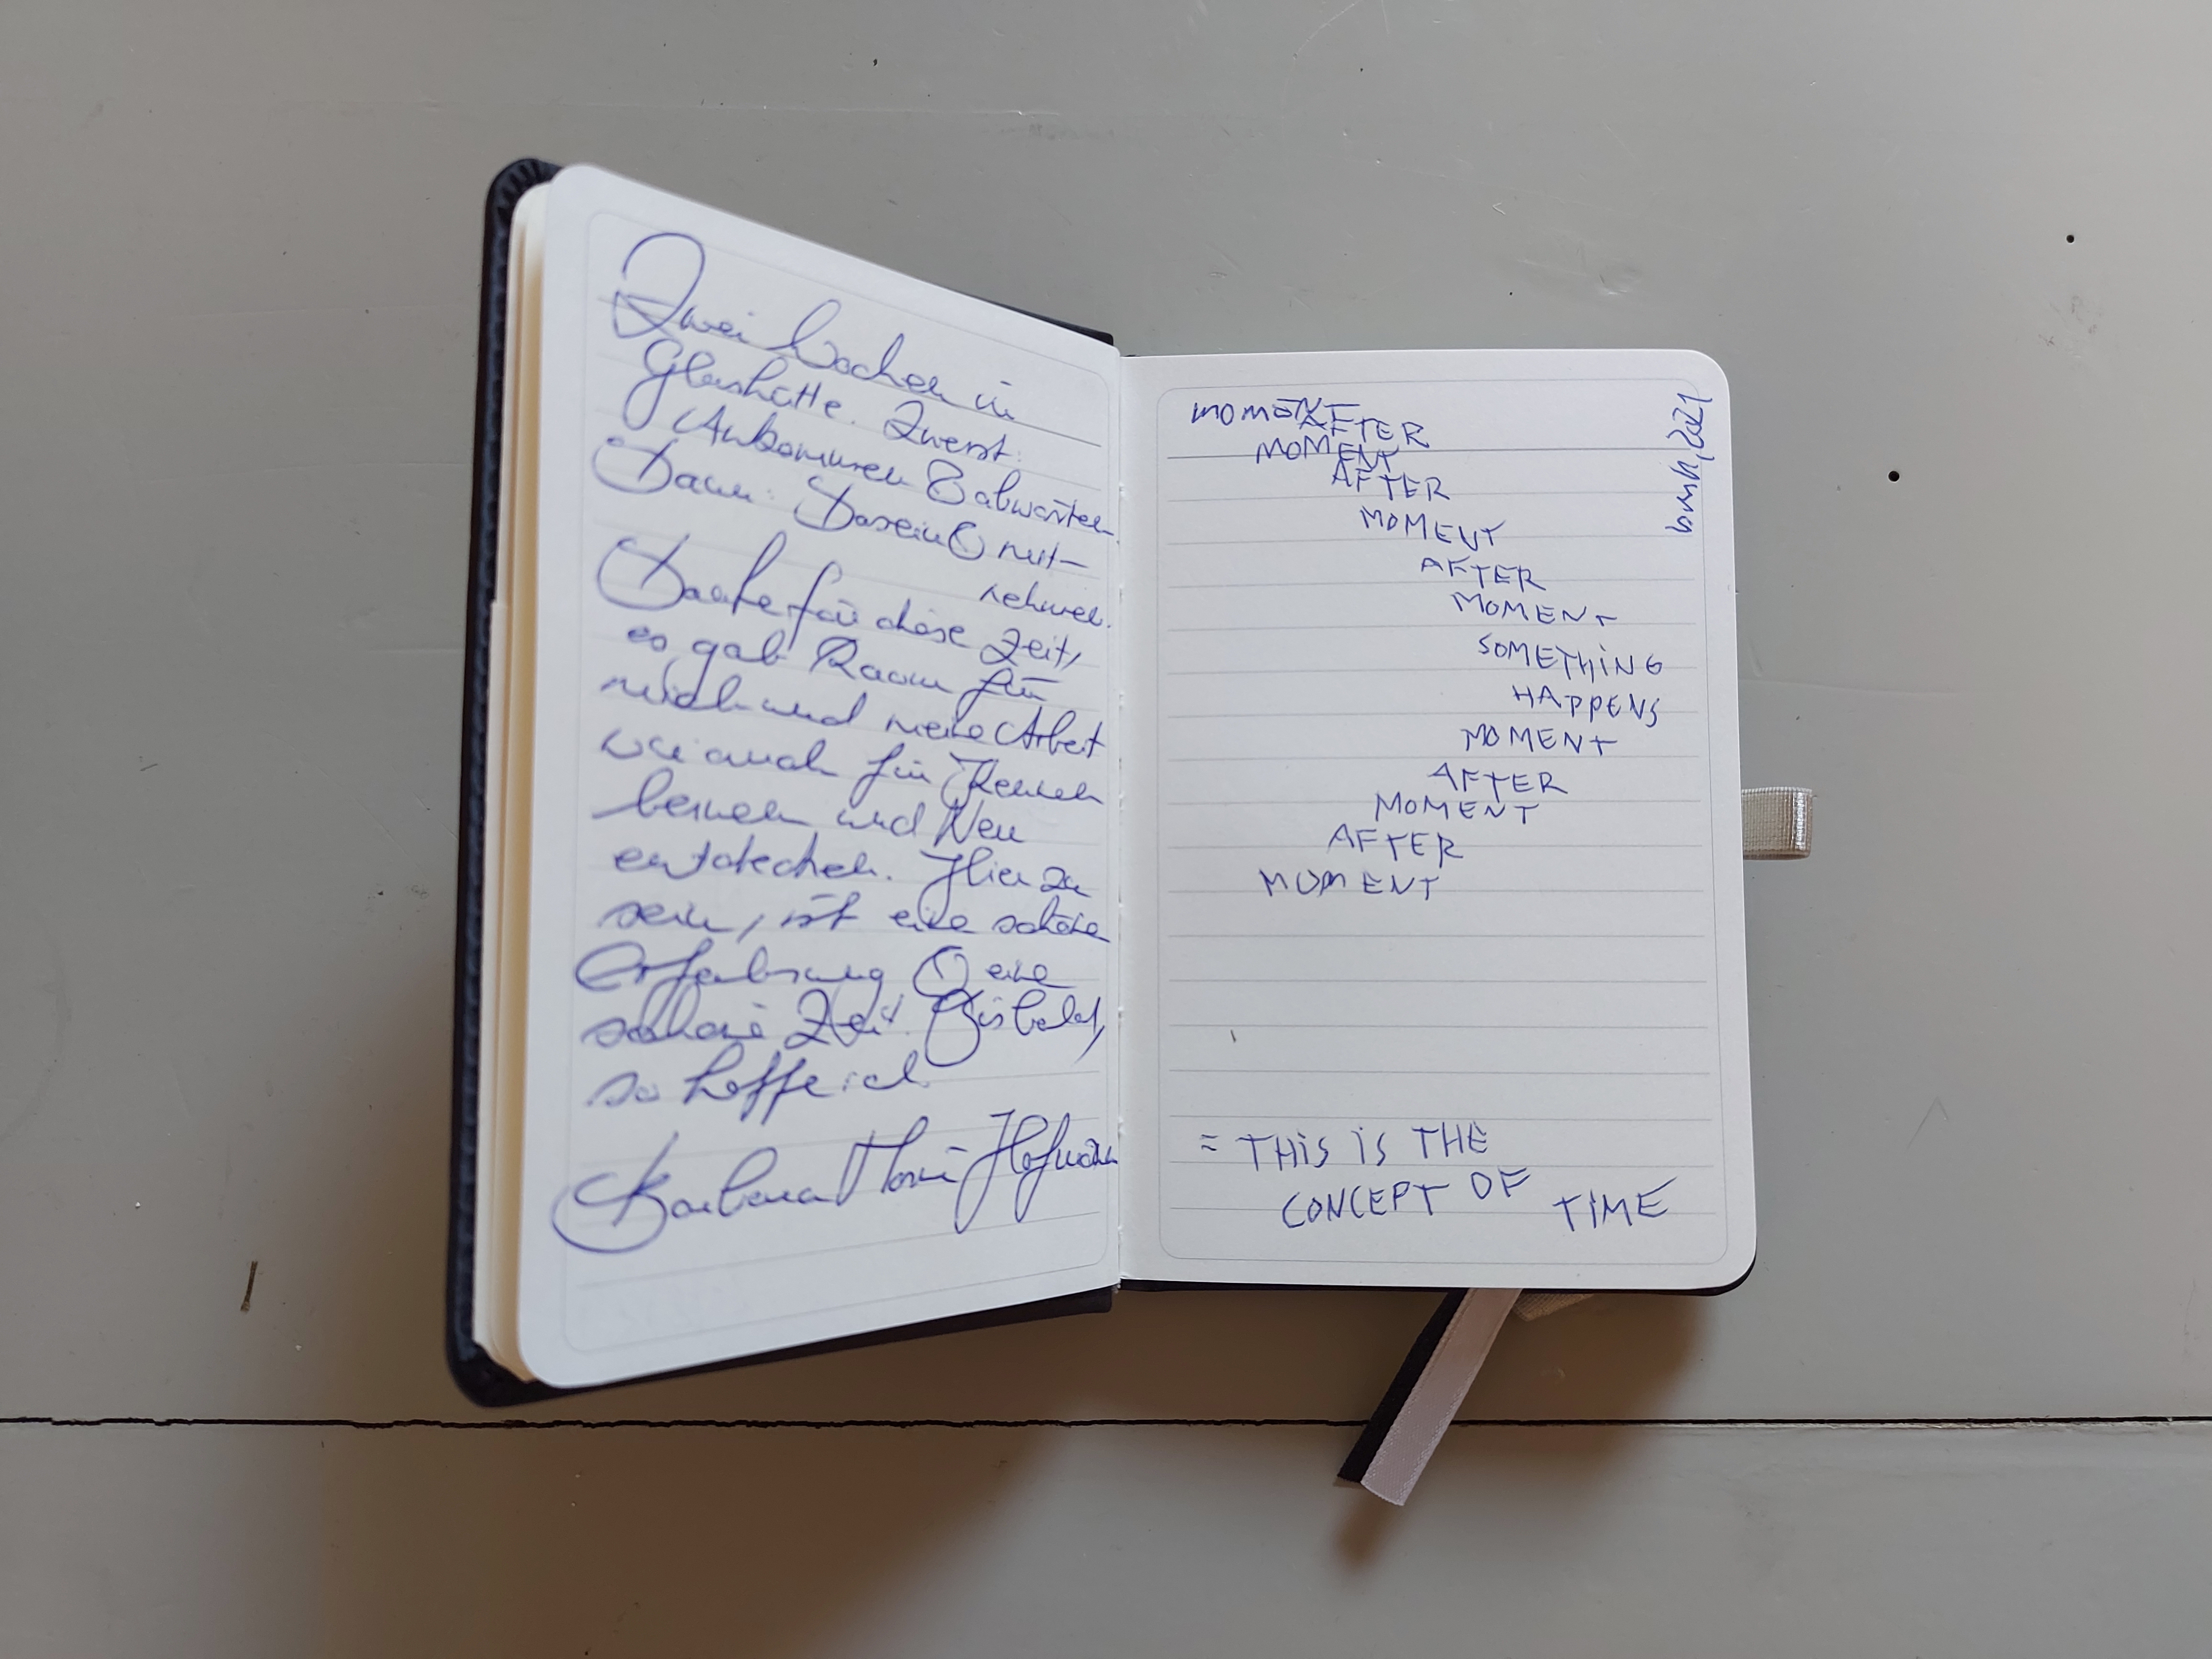 Zwei Wochen in
Glashütte. Zuerst:
Ankommen & abwarten.
Dann: Dasein & mit-
nehmen.
Danke für diese Zeit,
es gab Raum für
mich und meine Arbeit
wie auch für Kennen
lernen und Neu
entdecken. Hier zu
sein, ist eine schöne
Erfahrung & eine
schöne Zeit. Bis bald,
so hoffe ich
Barbara Maria Hofmann
MOMENT
AFTER
MOMENT
AFTER
MOMENT
AFTER
MOMENT
SOMETHING
HAPPENS
MOMENT
AFTER
MOMENT
AFTER
MOMENT
= THIS IS THE
CONCEPT OF TIME
bmh, 2021